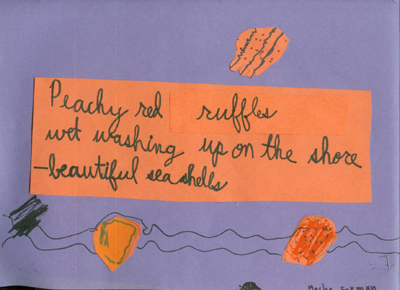 Peachy red ruffles
wet washing up on the shore
-beautiful seashells